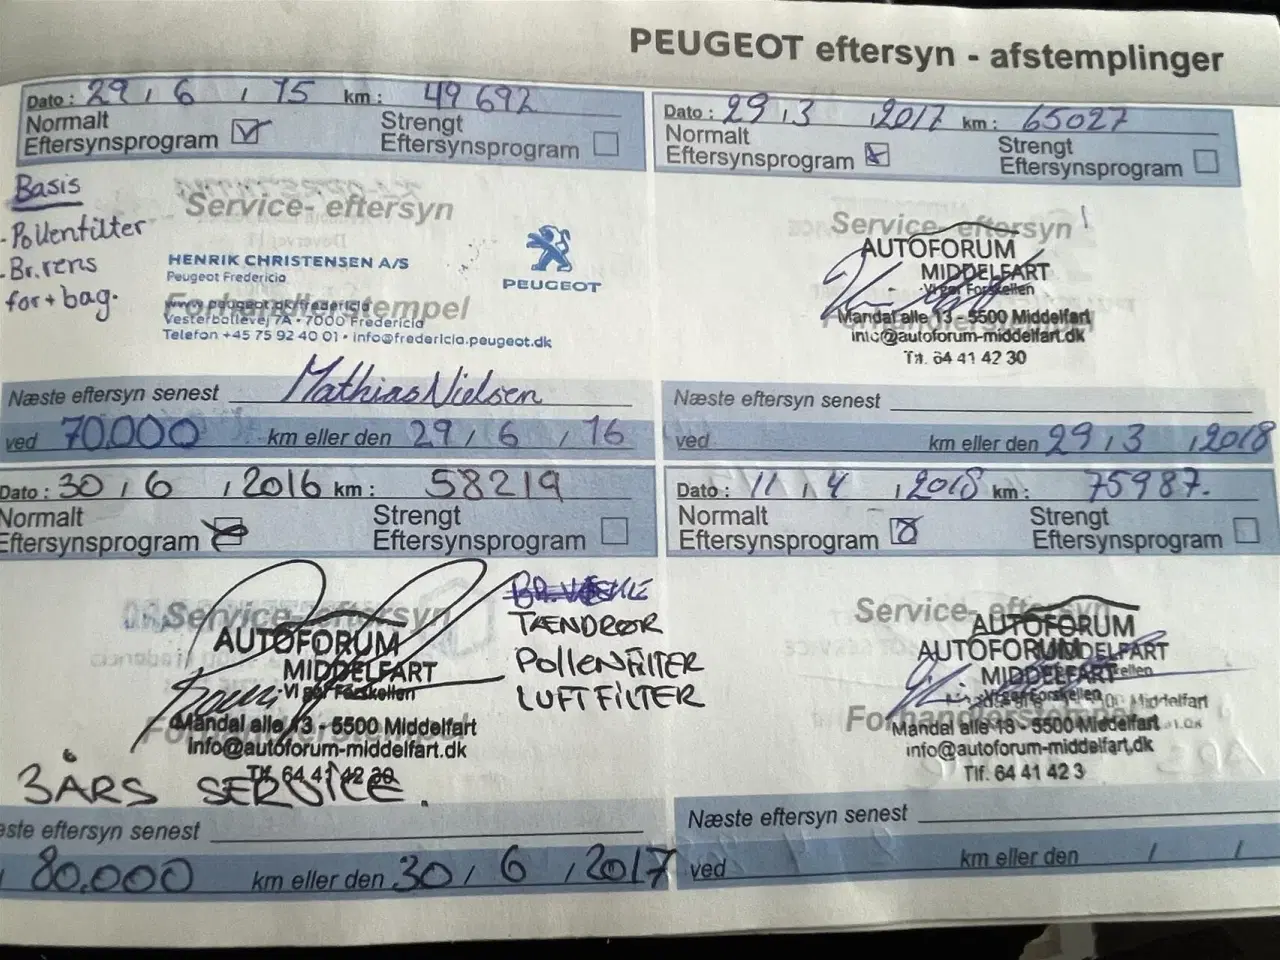 PEUGEOT eftersyn - afstemplinger
Dato : 29 , 6 , 15 km : 49 692
Normalt
Eftersynsprogram
Strengt
Eftersynsprogram
Basis
- Pollenfilter
- Br.rens
for + bag.
Service- eftersyn
HENRIK CHRISTENSEN A/S
Peugeot Fredericia
PEUGEOT
Forhandlerstempel
www.peugeot.dk/fredericia
Vesterballevej 7A • 7000 Fredericia
Telefon +45 75 92 40 01 • info@fredericia.peugeot.dk
Næste eftersyn senest Mathias Nielsen
ved 70.000 km eller den 29 , 6 , 16
Dato : 29 , 3 , 2017 km : 65027
Normalt
Eftersynsprogram
Strengt
Eftersynsprogram
Service- eftersyn
AUTOFORUM
MIDDELFART
Vi gør Forskellen
Mandal alle 13 - 5500 Middelfart
info@autoforum-middelfart.dk
Tlf. 64 41 42 30
Næste eftersyn senest
ved km eller den 29 , 3 , 2018
Dato : 30 , 6 , 2016 km : 58219
Normalt
Eftersynsprogram
Strengt
Eftersynsprogram
Service- eftersyn
TÆNDRØR
POLLENFILTER
LUFTFILTER
AUTOFORUM
MIDDELFART
Vi gør Forskellen
Mandal alle 13 - 5500 Middelfart
info@autoforum-middelfart.dk
Tlf. 64 41 42 30
3 ÅRS SERVICE.
æste eftersyn senest
80.000 km eller den 30 , 6 , 2017
Dato : 11 , 4 , 2018 km : 75987.
Normalt
Eftersynsprogram
Strengt
Eftersynsprogram
Service- eftersyn
AUTOFORUM
AUTOFORUM
MIDDELFART
Forskellen
Mandal alle 13 - 5500 Middelfart
info@autoforum-middelfart.dk
Tlf. 64 41 42 3
Næste eftersyn senest
ved km eller den / /